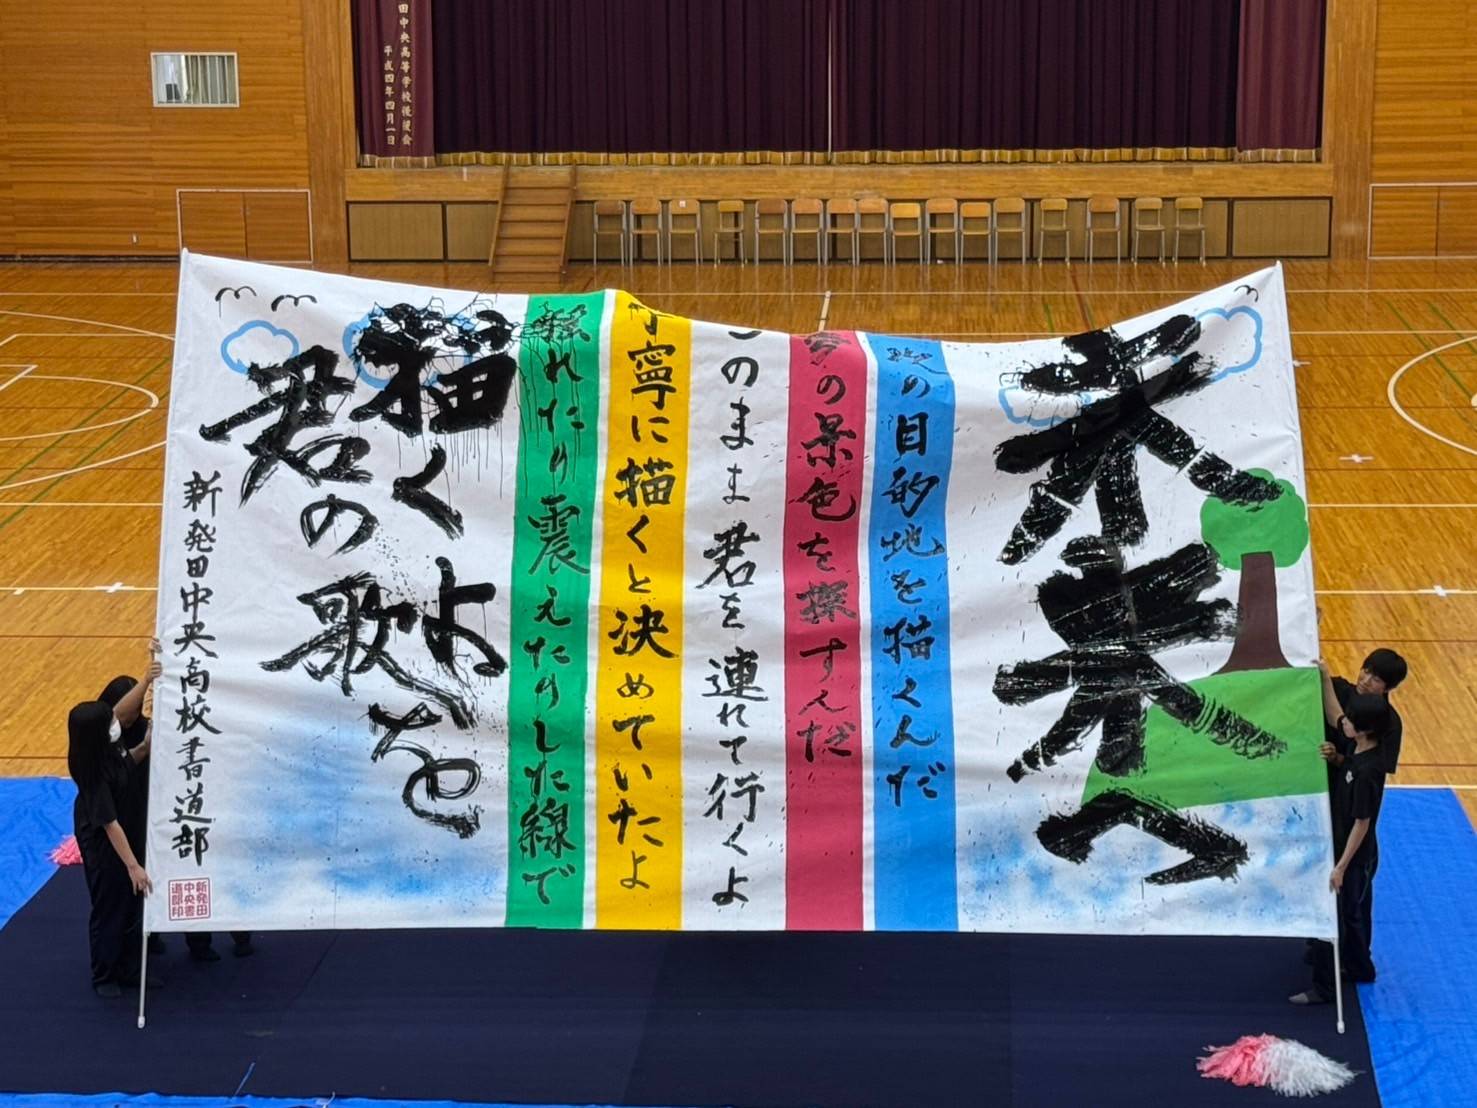 田中央高等学校後援会
平成四年四月一日
未来へ
次の目的地を描くんだ
夢の景色を探すんだ
このまま君を連れて行くよ
丁寧に描くと決めていたよ
揺れたり震えたりした線で
描くよ
君の歌を
新発田中央高校書道部
新発田
中央書
道部印